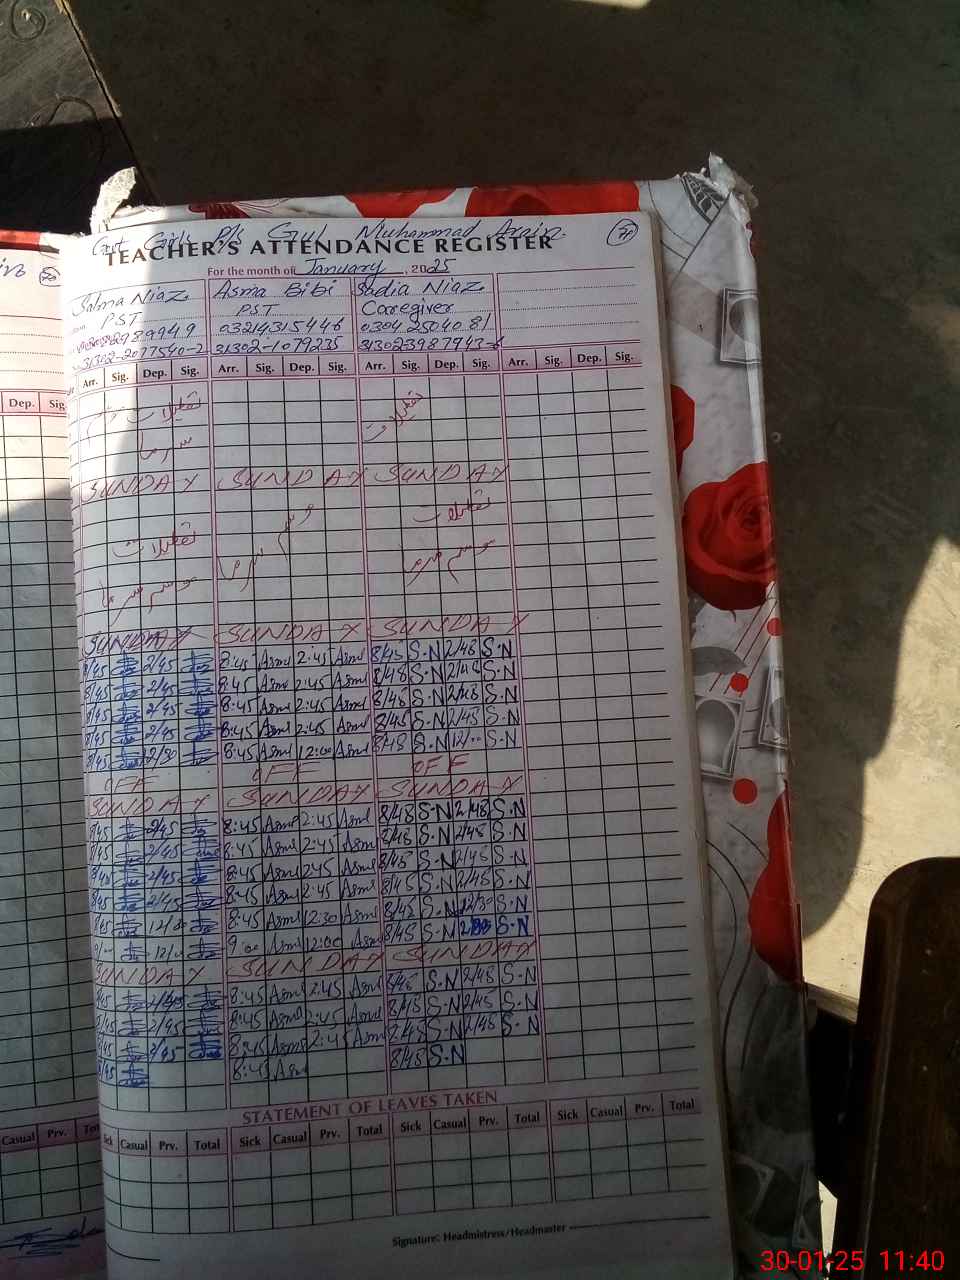 Govt Girls P/s Gul Muhammad Arain
TEACHER'S ATTENDANCE REGISTER
For the month of January, 2025
Salma Niaz Asma Bibi Sadia Niaz
PST PST Caregiver
03214315446 0304 2504081
31302-2077540-2 31302-1079235
Arr. Sig. Dep. Sig. Arr. Sig. Dep. Sig. Arr. Sig. Dep. Sig. Arr. Sig. Dep. Sig.
Dep. Sig
تعطیلات تعطیلات
سرما
SUNDAY SUNDAY SUNDAY
تعطیلات موسم سرما تعطیلات
موسم سرما موسم سرما
SUNDAY SUNDAY SUNDAY
8/45 2/45 8:45 Asma 2:45 Asma 8/45 S.N 2/45 S.N
8/45 2/45 8:45 Asma 2:45 Asma 8/45 S.N 2/45 S.N
8/45 2/45 8:45 Asma 2:45 Asma 8/45 S.N 2/45 S.N
8/45 2/45 8:45 Asma 2:45 Asma 8/45 S.N 2/45 S.N
8/45 12/30 8:45 Asma 12:00 Asma 8/45 S.N 12/00 S.N
OFF OFF OFF
SUNDAY SUNDAY SUNDAY
8/45 2/45 8:45 Asma 2:45 Asma 8/45 S.N 2/45 S.N
8/45 2/45 8:45 Asma 2:45 Asma 8/45 S.N 2/45 S.N
8/45 2/45 8:45 Asma 2:45 Asma 8/45 S.N 2/45 S.N
8/45 2/45 8:45 Asma 2:45 Asma 8/45 S.N 2/45 S.N
8/45 8:45 Asma 12:30 Asma 8/45 S.N 12/30 S.N
9:00 Asma 12:00 Asma 8/45 S.N S.N
SUNDAY SUNDAY SUNDAY
8/45 2/45 8:45 Asma 2:45 Asma 8/45 S.N 2/45 S.N
8/45 2/45 8:45 Asma 2:45 Asma 8/45 S.N 2/45 S.N
8/45 2/45 8:45 Asma 2:45 Asma 2/45 S.N 2/45 S.N
8/45 8:45 Asm 8/45 S.N
STATEMENT OF LEAVES TAKEN
Casual Prv. Sick Casual Prv. Total Sick Casual Prv. Total Sick Casual Prv. Total Sick Casual Prv. Total
Signature: Headmistress/Headmaster
30-01-25 11:40